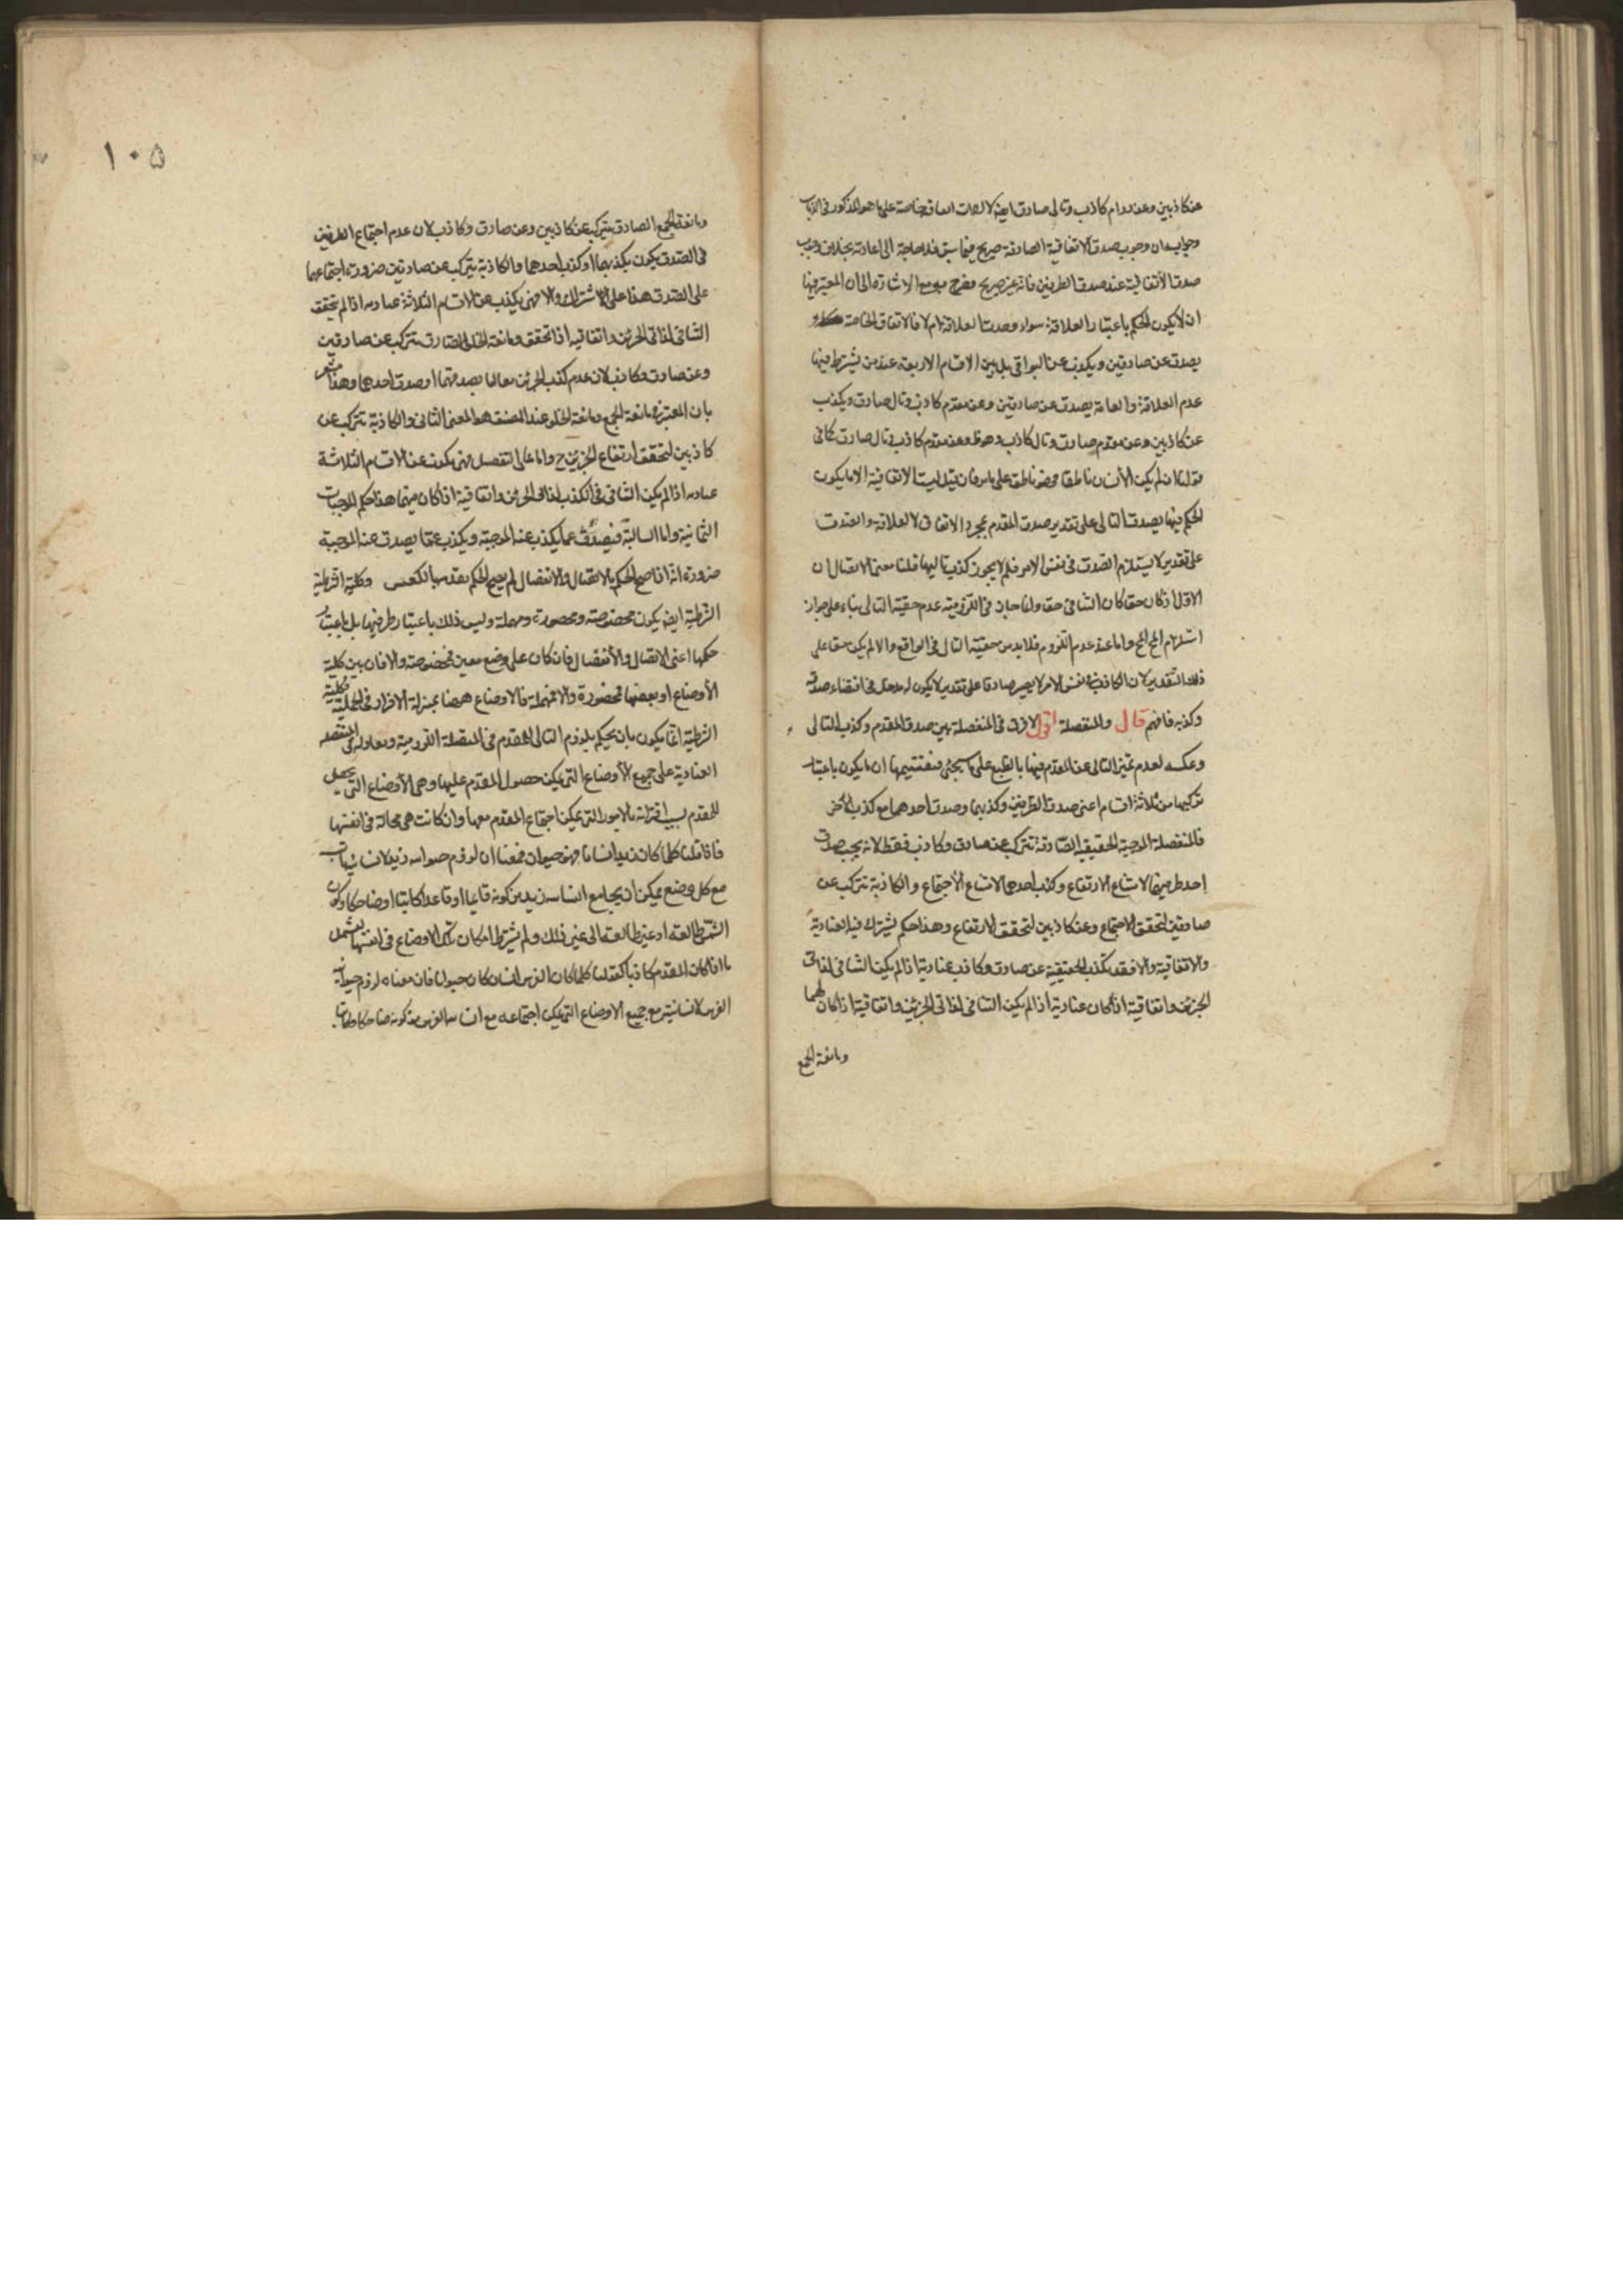 عن كاذبين وعن مقدم كاذب وتالى صادق ايضا لا لصدق خاصة على ما هو المذكور فى الكتاب
وجوابه ان وجوب صدق الاتفاقية الصادقة صريح فيما سبق فلا حاجة الى اعادته بخلاف وجوب
صدق الاتفاقية عند صدق الطرفين فانه غير صريح فصرح به مع الاشارة الى ان المعتبر فيها
ان لا يكون الحكم باعتبار العلاقة سواء وجدت العلاقة ام لا فالاتفاق الخاصة
يصدق عن صادقين ويكذب عن البواقى بل بين الاقسام الاربعة عند من يشترط فيها
عدم العلاقة والعامة يصدق عن صادقين وعن مقدم كاذب وتال صادق ويكذب
عن كاذبين وعن مقدم صادق وتال كاذب وهو ظ وعن مقدم كاذب وتال صادق كما فى
قولنا ان لم يكن الانسان ناطقا فهو ناطق على ما مر فان قيل ليست الاتفاقية الا ما يكون
الحكم فيها بصدق التالى على تقدير صدق المقدم بمجرد الاتفاق لا لعلاقة والصدق
على تقدير لا يستلزم الصدق فى نفس الامر فلم لا يجوز كذب تاليها قلنا معنى الاتصال ان
الاول اذ كان حقا كان الثانى حقا وانما جاز فى اللزومية عدم حقية التالى بناء على جواز
استلزام المح المح واما عند عدم اللزوم فلا بد من حقية التالى فى الواقع والا لم يكن حقا على
ذلك التقدير لان الكاذب فى نفس الامر لا يصير صادقا على تقدير لا يكون له مدخل فى اقتضاء صدقه
وكذبه فافهم قال والمنفصلة اقول لا فرق فى المنفصلة بين صدق المقدم وكذب التالى
وعكسه لعدم تميز التالى عن المقدم فيها بالطبع على ما سيجئ فنقتسيمها ان ما يكون باعتبار
تركيبها من ثلاثة اقسام اعنى صدق الطرفين وكذبهما وصدق احدهما مع كذب الاخر
فالمنفصلة الموجبة الحقيقية الصادقة تتركب عن صادق وكاذب فقط لانه يجب صدق
احد طرفيها لامتناع الارتفاع وكذب احدهما لامتناع الاجتماع والكاذبة تتركب عن
صادقين لتحقق الاجتماع وعن كاذبين لتحقق الارتفاع وهذا حكم يشترك فيه العنادية
والاتفاقية والا فقد تكذب الحقيقية عن صادق وكاذب عنادية اذا لم يكن التنافى لذاتى
الجزئين واتفاقية اذا كان عنادية اذا لم يكن التنافى لذاتى الجزئين واتفاقية اذا كان لهما
ومانعة الجمع
١٠۵
ومانعة الجمع الصادق يتركب عن كاذبين وعن صادق وكاذب لان عدم اجتماع الطرفين
فى الصدق يكون بكذبهما او كذب احدهما والكاذبة يتركب عن صادقين ضرورة اجتماعهما
على الصدق هذا على الاشتراك والا فهى يكذب عن الاقسام الثلاثة عنادية اذا لم يتحقق
التنافى لذاتى الجزئين واتفاقية اذا تحقق ومانعة الخلو الصادق يتركب عن صادقين
وعن صادق وكاذب لان عدم كذب الجزئين معا اما بصدقهما او صدق احدهما وهذا مشعر
بان المعتبر فى مانعة الجمع ومانعة الخلو عند المصنف هو المعنى الثانى والكاذبة تتركب عن
كاذبين لتحقق ارتفاع الجزئين ح واما على التفصيل فهى يكون عن الاقسام الثلاثة
عنادية اذا لم يكن التنافى فى الكذب لذاتى الجزئين واتفاقية اذا كان فيهما هذا حكم الموجبات
الثمانية واما السالبة فيصدق عما يكذب عنه الموجبة ويكذب عما يصدق عنه الموجبة
ضرورة انه اذا صح الحكم بالاتصال والانفصال لم يصح الحكم بعدمه وبالعكس وكلية الشرطية
الشرطية ايضا يكون مخصوصة ومحصورة ومهملة وليس ذلك باعتبار طرفيها بل باعتبار
حكمها اعنى الاتصال والانفصال فان كان على وضع معين فمخصوصة والا فان بين كلية
الأوضاع او بعضها فمحصورة والا فمهملة فالاوضاع ههنا بمنزلة الافراد فى الحملية فكلية
الشرطية انما يكون بان يحكم بلزوم التالى للمقدم فى المتصلة اللزومية ومعاندة فى المنفصلة
العنادية على جميع الأوضاع التى يمكن حصول المقدم عليها وهى الأوضاع التى يحصل
للمقدم بسبب اقترانه بالامور التى يمكن اجتماع المقدم معها وان كانت هى محالة فى انفسها
فاذا قلنا كلما كان زيد انسانا فهو حيوان فمعناه ان لزوم حيوانية زيد لانسانية ثابت
مع كل وضع يمكن ان يجامع انسانية زيد من كونه قايما او قاعدا كاتبا او ضاحكا وكون
الشمس طالعة او غير طالعة الى غير ذلك ولم يشترط امكان تلك الاوضاع فى انفسها ليشمل
ما اذا كان المقدم كاذبا كقولنا كلما كان الفرس انسان كان حيوانا فان معناه لزوم حيوانية
الفرس لانسانيته مع جميع الاوضاع التى يمكن اجتماعه مع انسانية الفرس من كونه ضاحكا وكاتبا